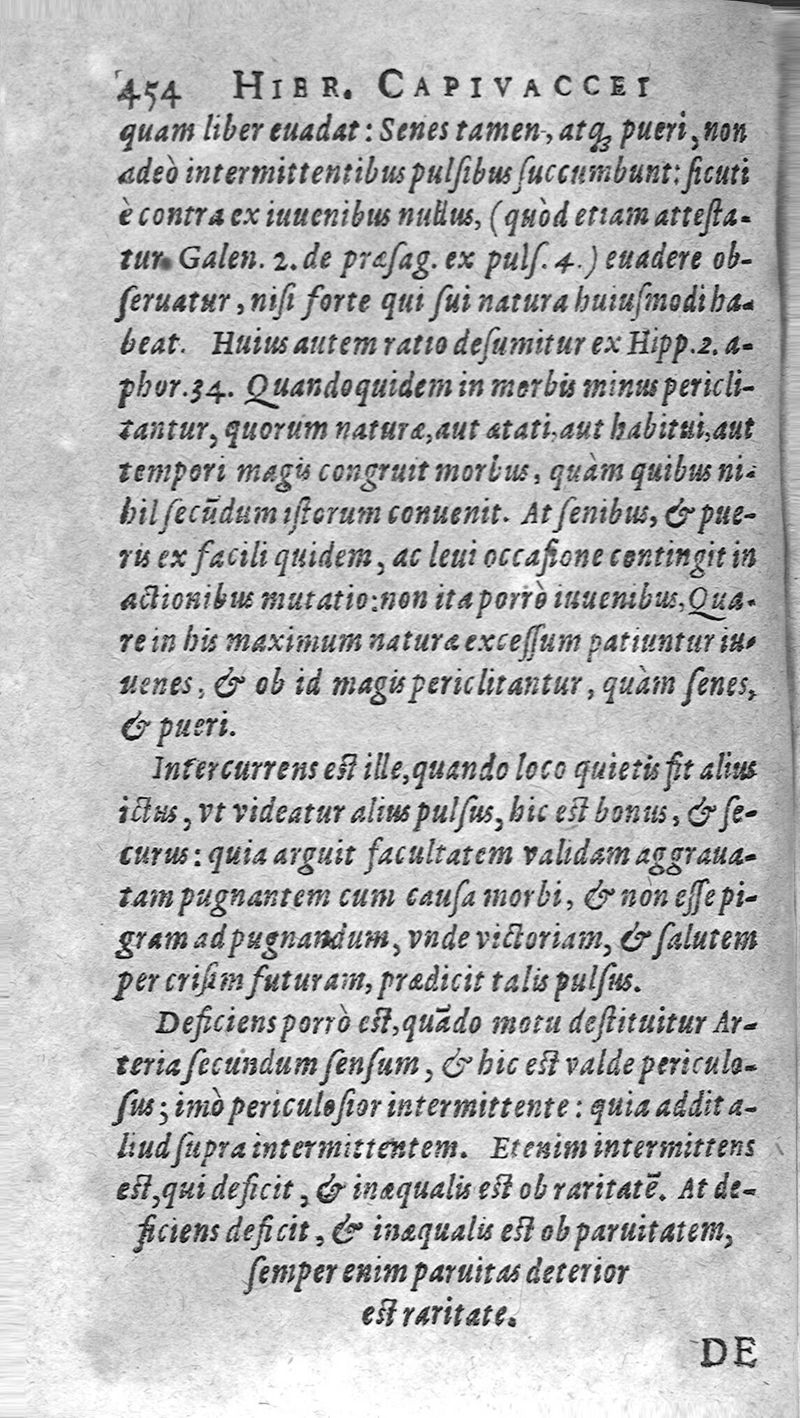 454 HIER. CAPIVACCEI
quam liber euadat: Senes tamen, atq́ꝫ pueri, non
adeò intermittentibus pulſibus ſuccumbunt: ſicuti
è contra ex iuuenibus nullus, (quòd etiam atteſta-
tur Galen. 2. de præſag. ex pulſ. 4.) euadere ob-
ſeruatur, niſi forte qui ſui natura huiuſmodi ha-
beat. Huius autem ratio deſumitur ex Hipp. 2. a-
phor. 34. Quandoquidem in morbis minus pericli-
tantur, quorum naturæ, aut ætati, aut habitui, aut
tempori magis congruit morbus, quàm quibus ni-
hil ſecũdum iſtorum conuenit. At ſenibus, & pue-
ris ex facili quidem, ac leui occaſione contingit in
actionibus mutatio: non ita porrò iuuenibus, Qua-
re in his maximum naturæ exceſſum patiuntur iu-
uenes, & ob id magis periclitantur, quàm ſenes,
& pueri.
Intercurrens eſt ille, quando loco quietis fit alius
ictus, vt videatur alius pulſus, hic eſt bonus, & ſe-
curus: quia arguit facultatem validam aggraua-
tam pugnantem cum cauſa morbi, & non eſſe pi-
gram ad pugnandum, vnde victoriam, & ſalutem
per criſim futuram, prædicit talis pulſus.
Deficiens porrò eſt, quãdo motu deſtituitur Ar-
teria ſecundum ſenſum, & hic eſt valde periculo-
ſus; imò periculoſior intermittente: quia addit a-
liud ſupra intermittentem. Etenim intermittens
eſt, qui deficit, & inæqualis eſt ob raritatẽ. At de-
ficiens deficit, & inæqualis eſt ob paruitatem,
ſemper enim paruitas deterior
eſt raritate.
DE